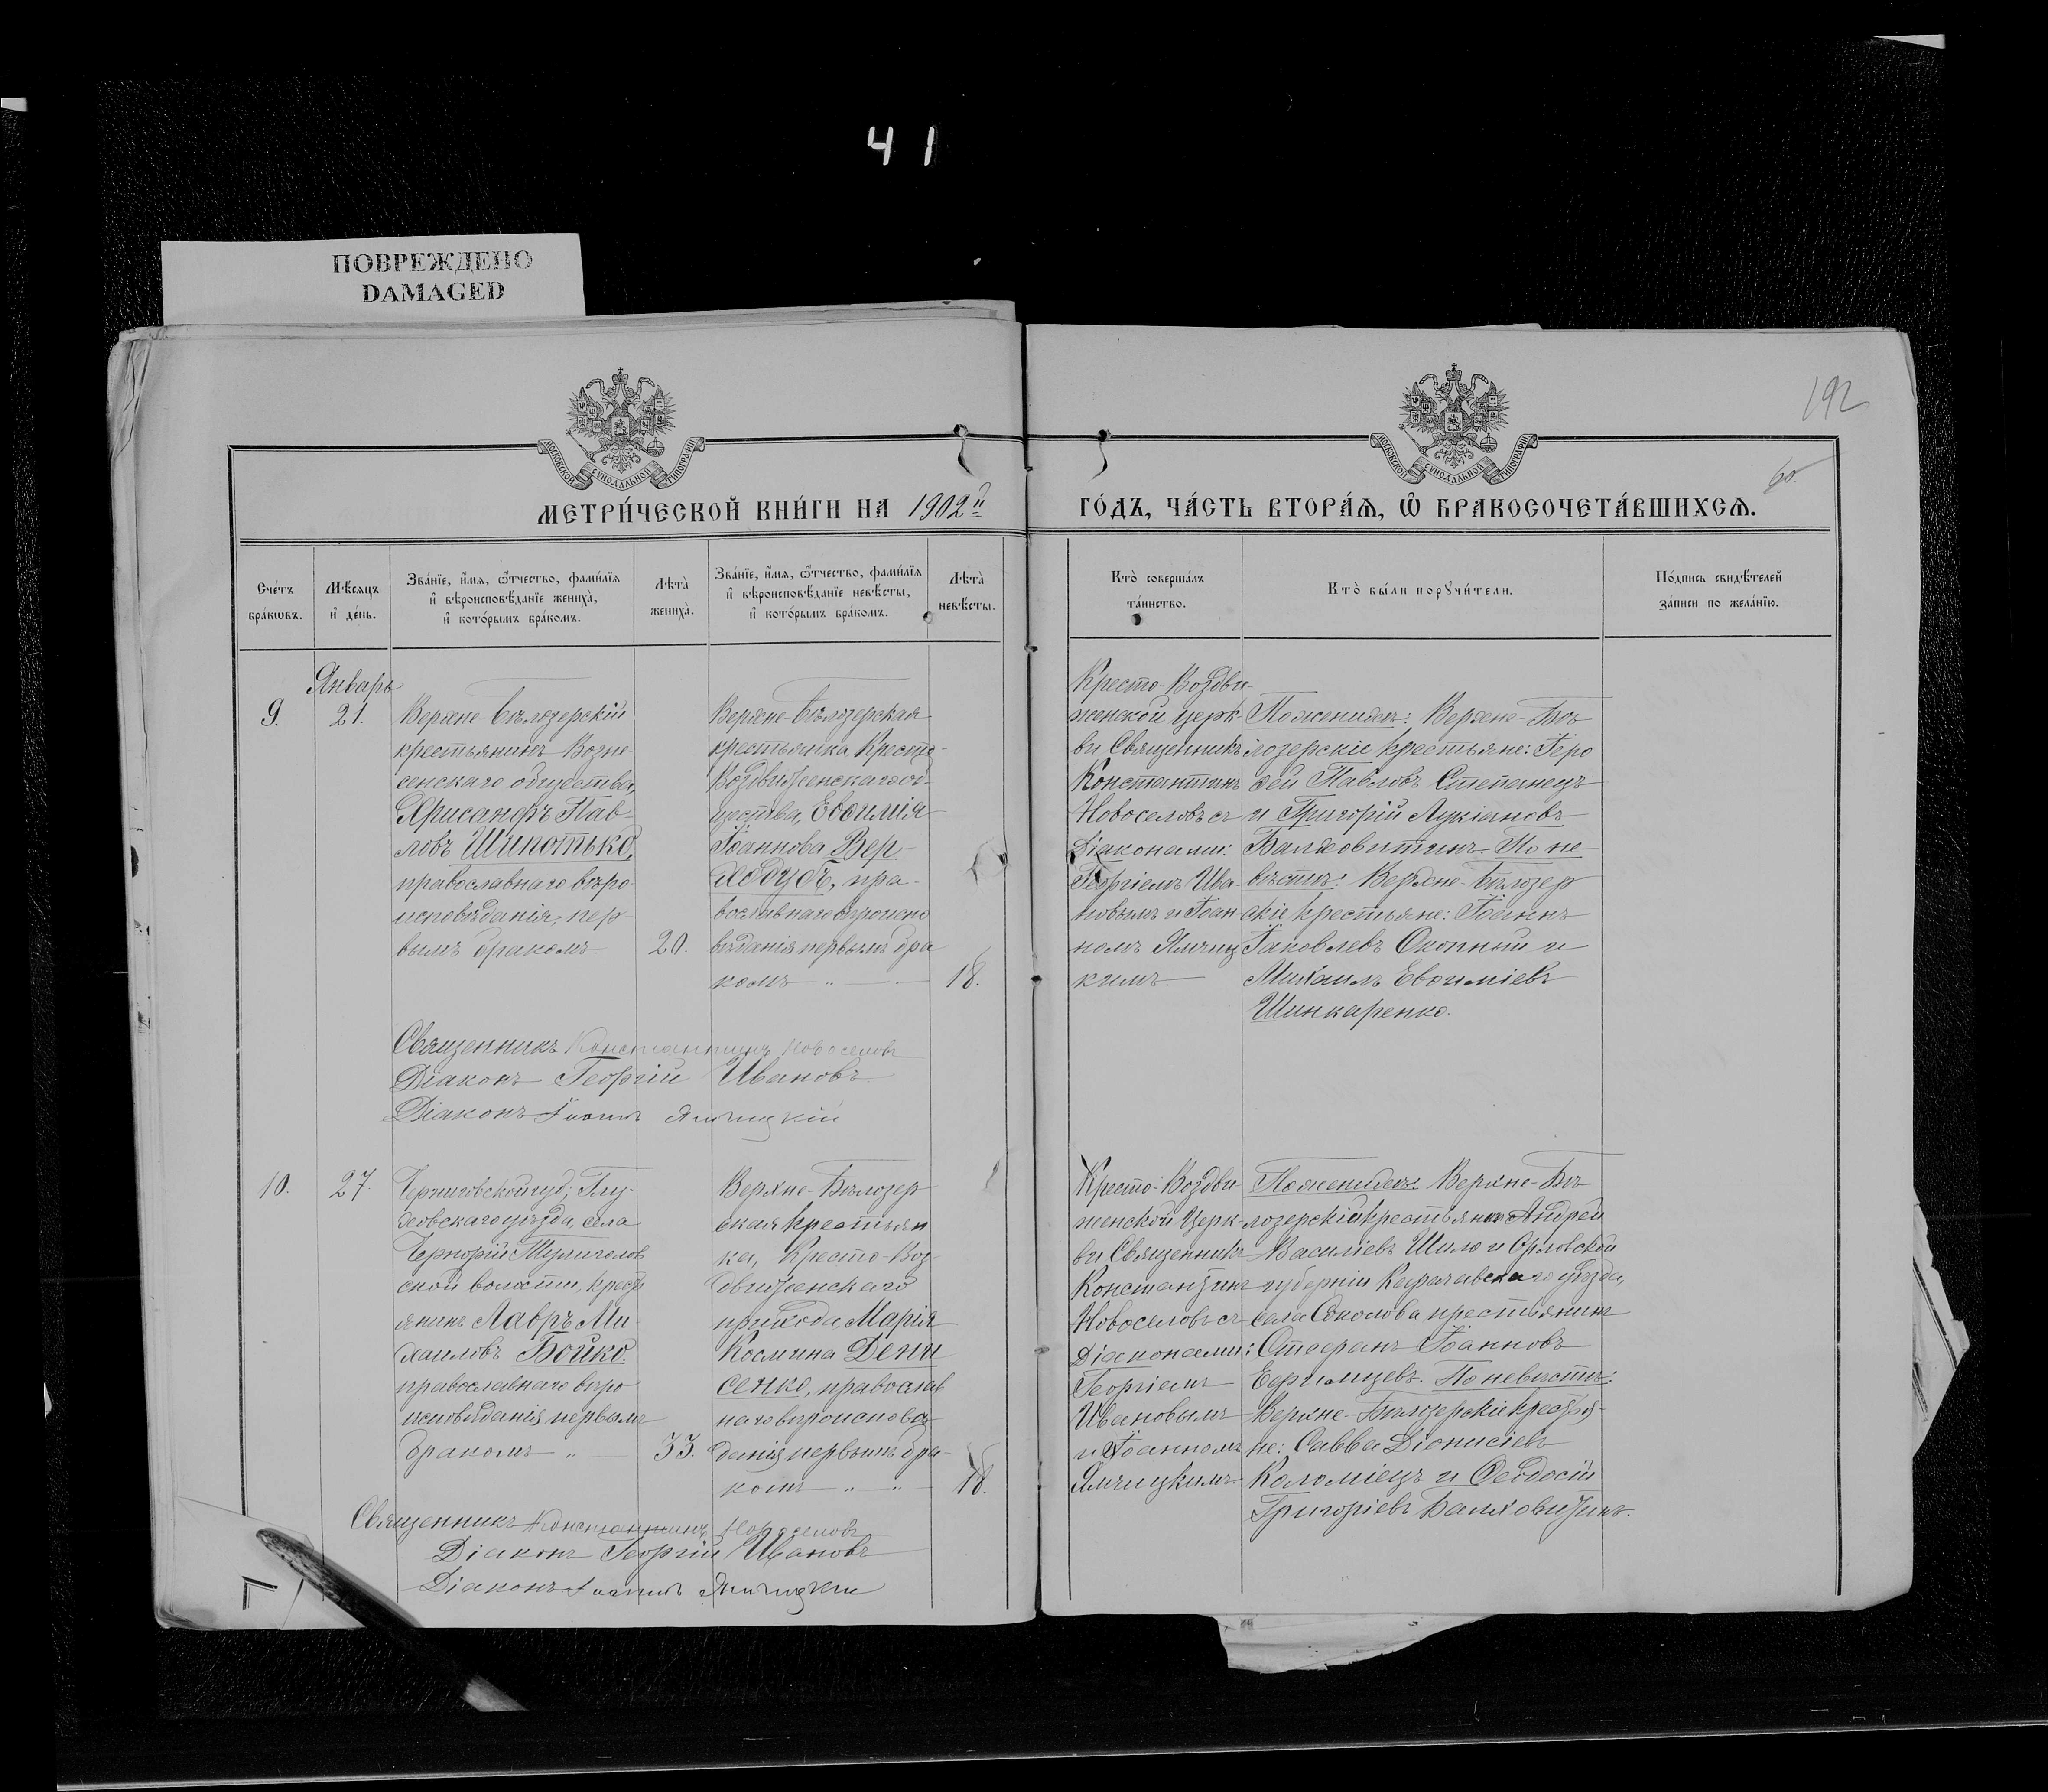 41
ПОВРЕЖДЕНО
DAMAGED
192
60
МОСКОВСКОЙ СѴНОДАЛЬНОЙ ТИПОГРАФІИ
МОСКОВСКОЙ СѴНОДАЛЬНОЙ ТИПОГРАФІИ
МЕТРИ́ЧЕСКОЙ КНИ́ГИ НА 1902й
ГО́ДЪ, ЧА́СТЬ ВТОРА́Ѧ, Ѡ҆ БРАКОСОЧЕТА́ВШИХСѦ.
Сче́тъ
бра́кѡвъ.
Мѣ́сяцъ
и҆ де́нь.
Зва́нїе, и҆́мѧ, ѻ҆́тчество, фами́лїѧ
и҆ вѣроисповѣ́данїе жениха̀,
и҆ кото́рымъ бра́комъ.
Лѣта̀
жениха̀.
Зва́нїе, и҆́мѧ, ѻ҆́тчество, фами́лїѧ
и҆ вѣроисповѣ́данїе невѣ́сты,
и҆ кото́рымъ бра́комъ.
Лѣта̀
невѣ́сты.
Кто̀ соверша́лъ
та́инство.
Кто̀ бы́ли порꙋчи́тели.
По́дпись свидѣ́телей
за́писи по жела́нїю.
Январь
9.
21.
Верхне-Бѣлозерскій
крестьянинъ Возне-
сенскаго общества,
Хрисанфъ Пав-
ловъ Шипотько,
православнаго вѣро-
исповѣданія, пер-
вымъ бракомъ
20.
Верхне-Бѣлозерская
крестьянка Кресто-
Воздвиженскаго об-
щества, Евѳимія
Іоаннова Вер-
хобудъ, пра-
вославнаго вѣроиспо
вѣданія первымъ бра
комъ
18.
Кресто-Воздви-
женской церк-
ви Священникъ
Константинъ
Новоселовъ съ
Діаконами:
Георгіемъ Ива-
новымъ и Іоан-
номъ Ямчиц
кимъ.
По женихѣ: Верхне-Бѣ
лозерскіе крестьяне: Іеро
ѳей Павловъ Степанецъ
и Григорій Лукіановъ
Балховитинъ. По не-
вѣстѣ: Верхне-Бѣлозер
скіе крестьяне: Іоаннъ
Іаковлевъ Окопный и
Михаилъ Евѳиміевъ
Шинкаренко.
Священникъ Константинъ Новоселовъ
Діаконъ Георгій Ивановъ
Діаконъ Іоаннъ Ямчицкій
10.
27.
Черниговской губ; Глу-
ховскаго уѣзда, села
скои волости, крестъ
янинъ Лавръ Ми-
хаиловъ Бойко.
православнаго вѣро
исповѣданія первымъ
бракомъ
33.
Верхне-Бѣлозер
ская крестьян
ка, Кресто-Воз-
движенскаго
прихода Марія
Космина Дени
сенко, православ
наго вѣроисповѣ-
данія первымъ бра-
комъ
18.
Кресто-Воздви
женской Церк-
ви Священникъ
Константинъ
Новоселовъ съ
Діаконами:
Георгіемъ
Ивановымъ
и Іоанномъ
Ямчицкимъ.
По женихѣ: Верхне-Бѣ
лозерскій крестьянинъ Андрей
Василіевъ Шило и Орловской
губерніи Карачевскаго уѣзда,
села Соколова крестьянинъ
Стефанъ Іоанновъ
По невѣстѣ:
Верхне-Бѣлозерскіе крестья-
не: Савва Діонисіевъ
Коломіецъ и Ѳеодосій
Григоріевъ Балховитинъ.
Священникъ Константинъ Новоселовъ
Діаконъ Георгій Ивановъ
Діаконъ Іоаннъ Ямчицкій